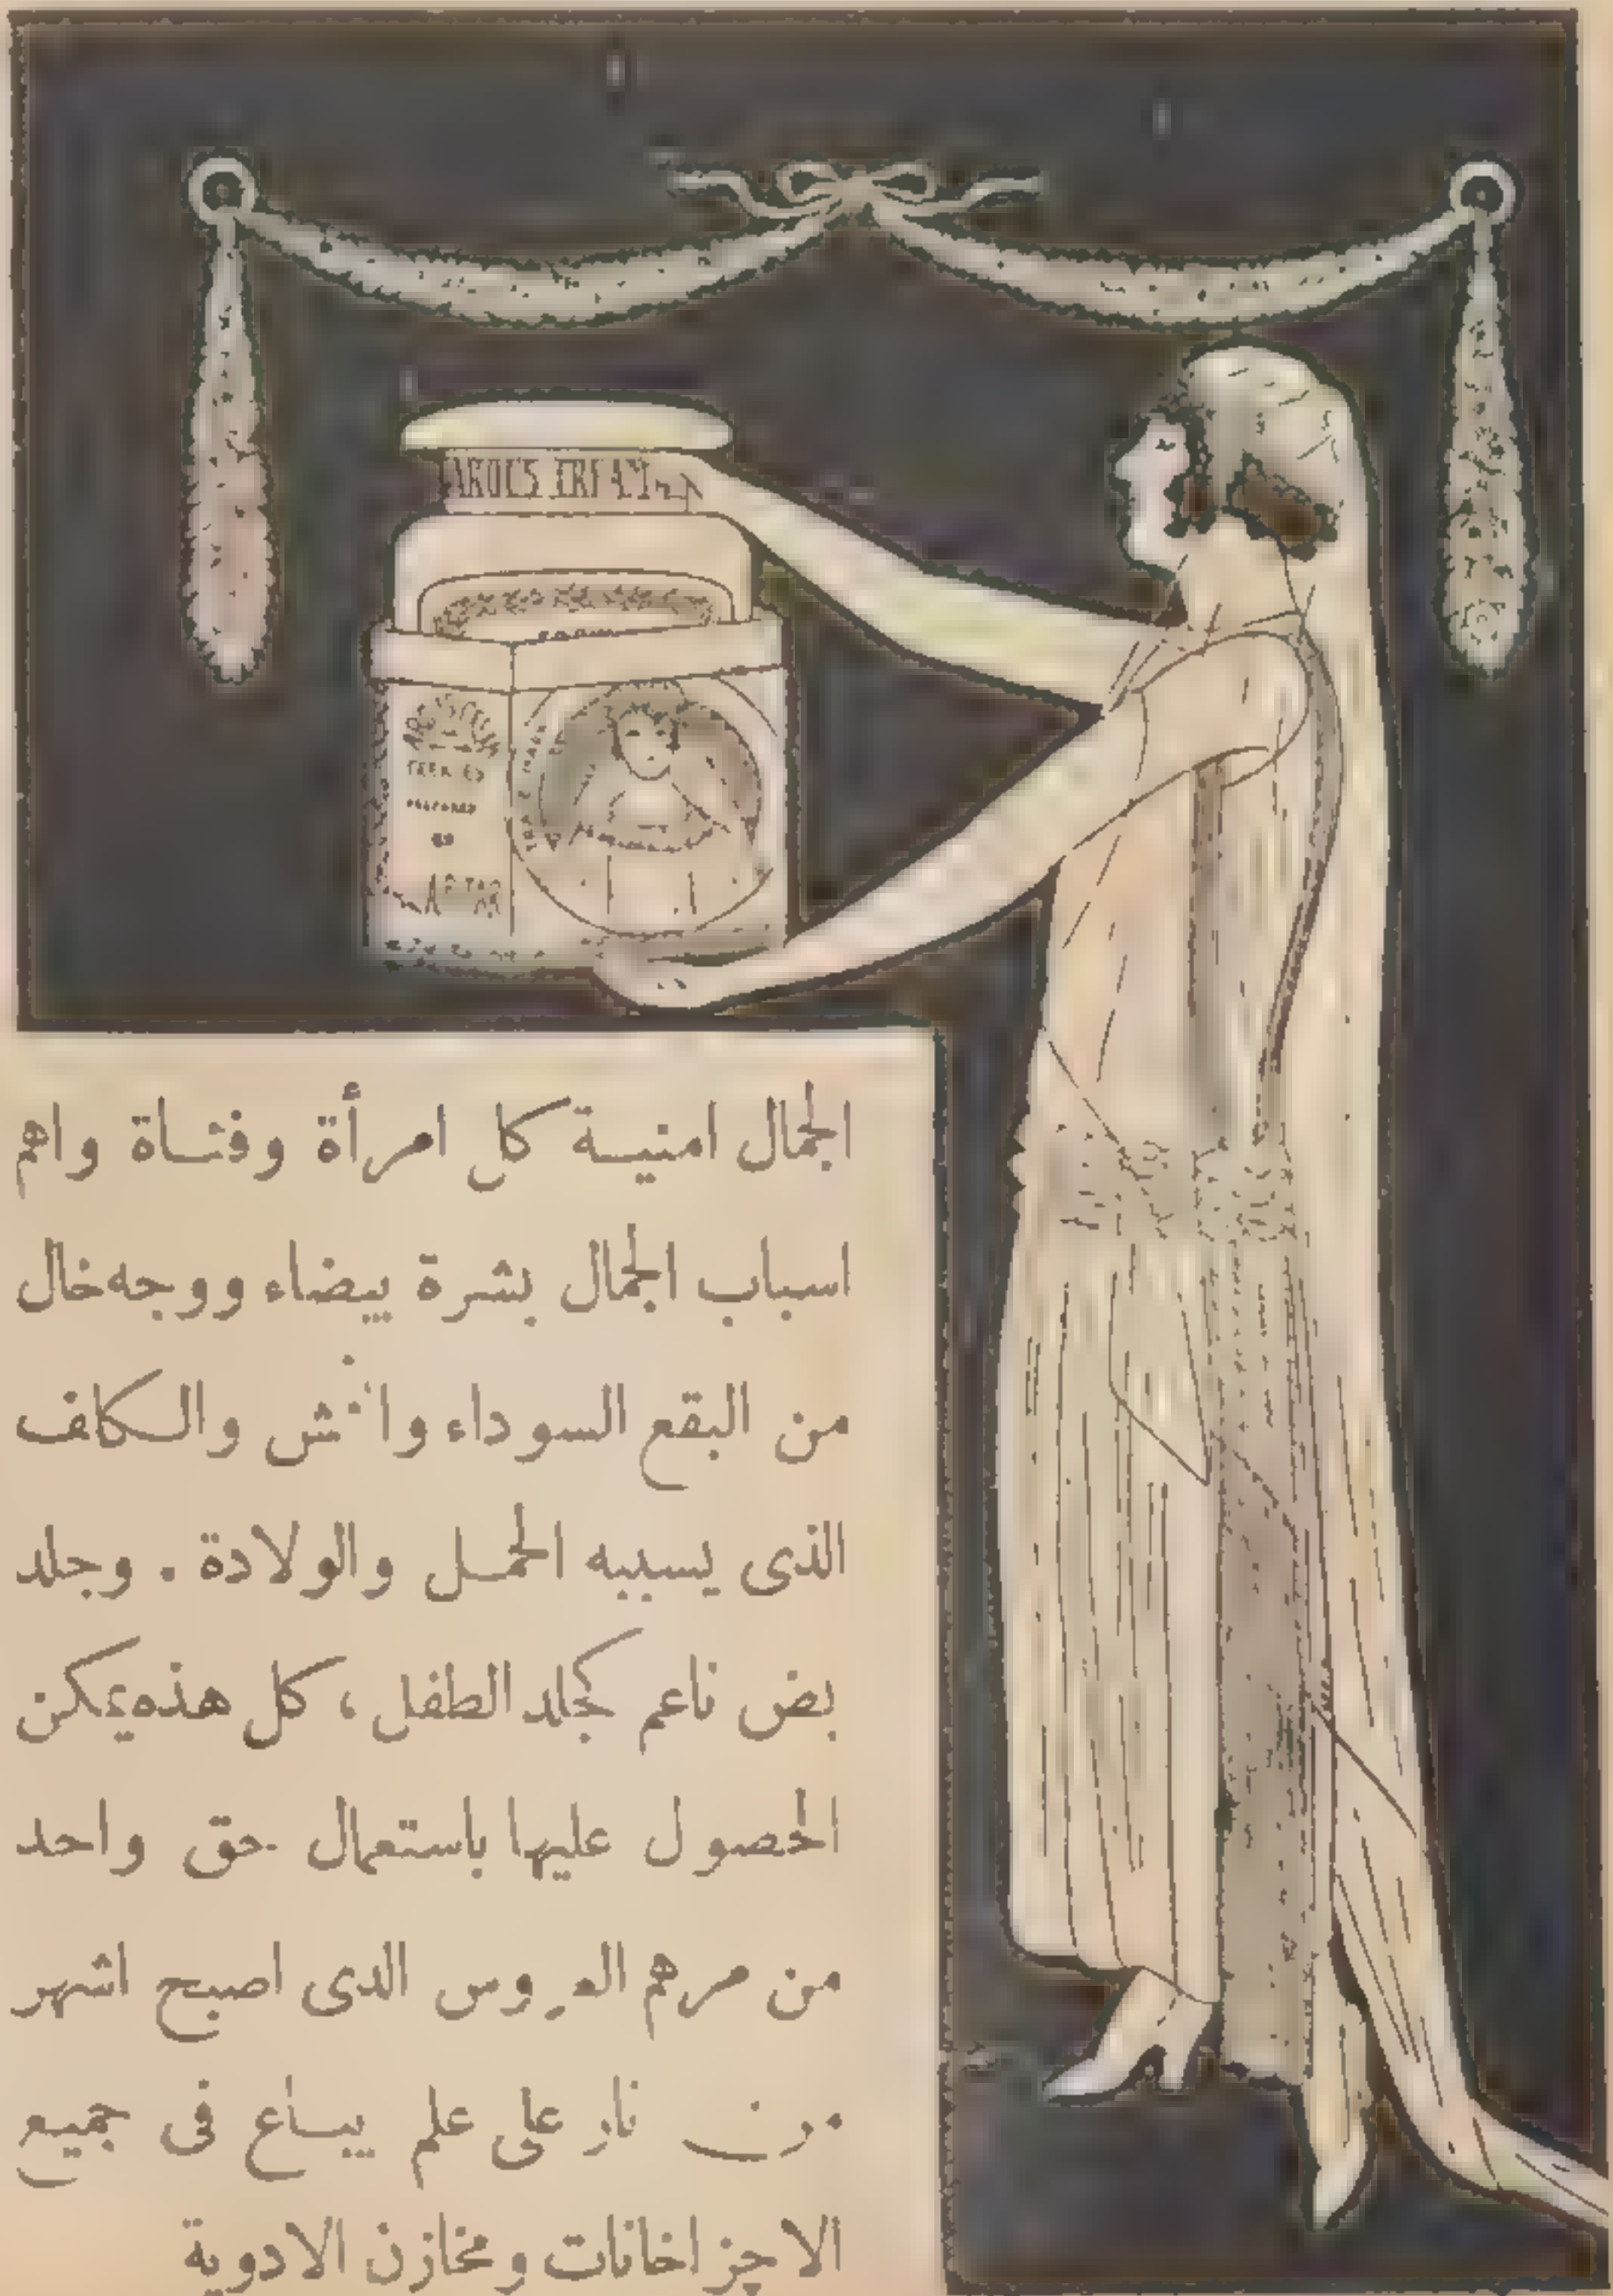 CREAM
BY
الجمال امنيـة كل امرأة وفتـاة واهم
اسباب الجمال بشرة بيضاء ووجه خال
من البقع السوداء والكلف
الذى يسببه الحمـل والولادة . وجلد
بض ناعم كجلد الطفل ، كل هذه يمكن
الحصول عليها باستعمال حق واحد
من مرهم العروس الذى اصبح اشهر
من نار على علم يبـاع فى جميع
الاجزاخانات ومخازن الادوية